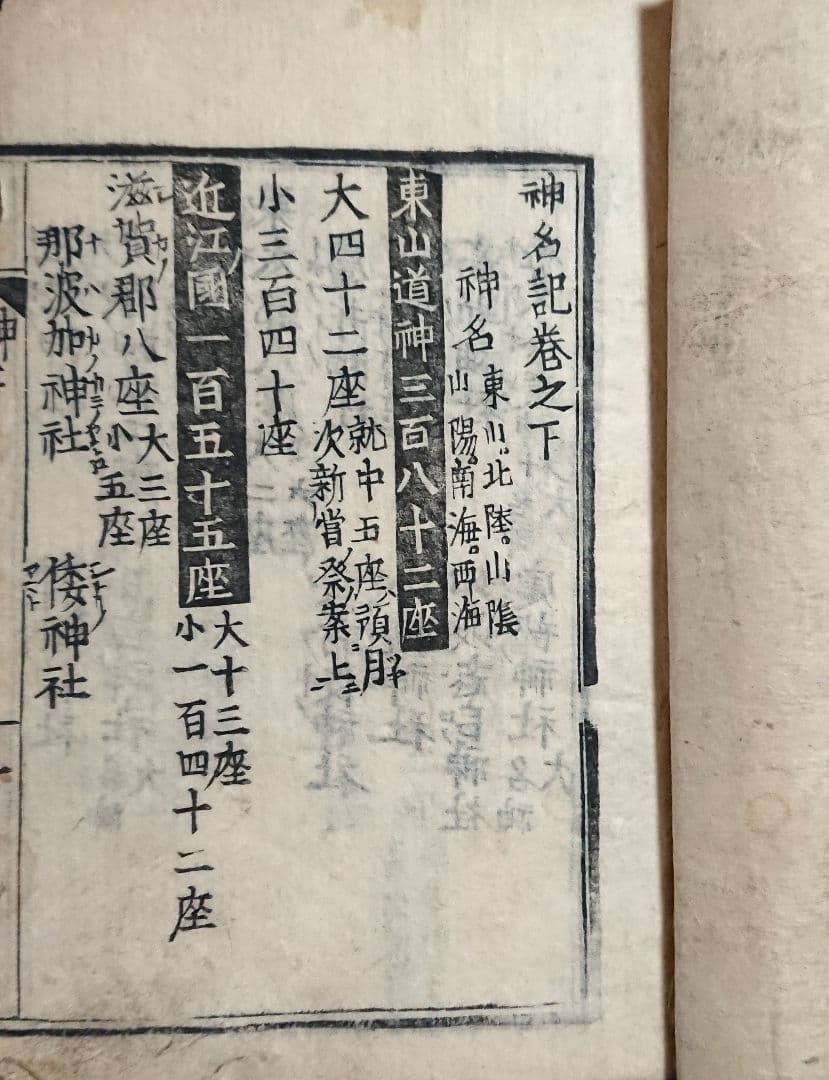 神名記巻之下
神名 東山。北陸。山陰
山陽。南海。西海
東山道神三百八十二座
大四十二座 就中五座預月
次新嘗祭案上
小三百四十座
近江國一百五十五座 大十三座
小一百四十二座
滋賀郡八座 大三座
小五座
那波加神社 倭神社